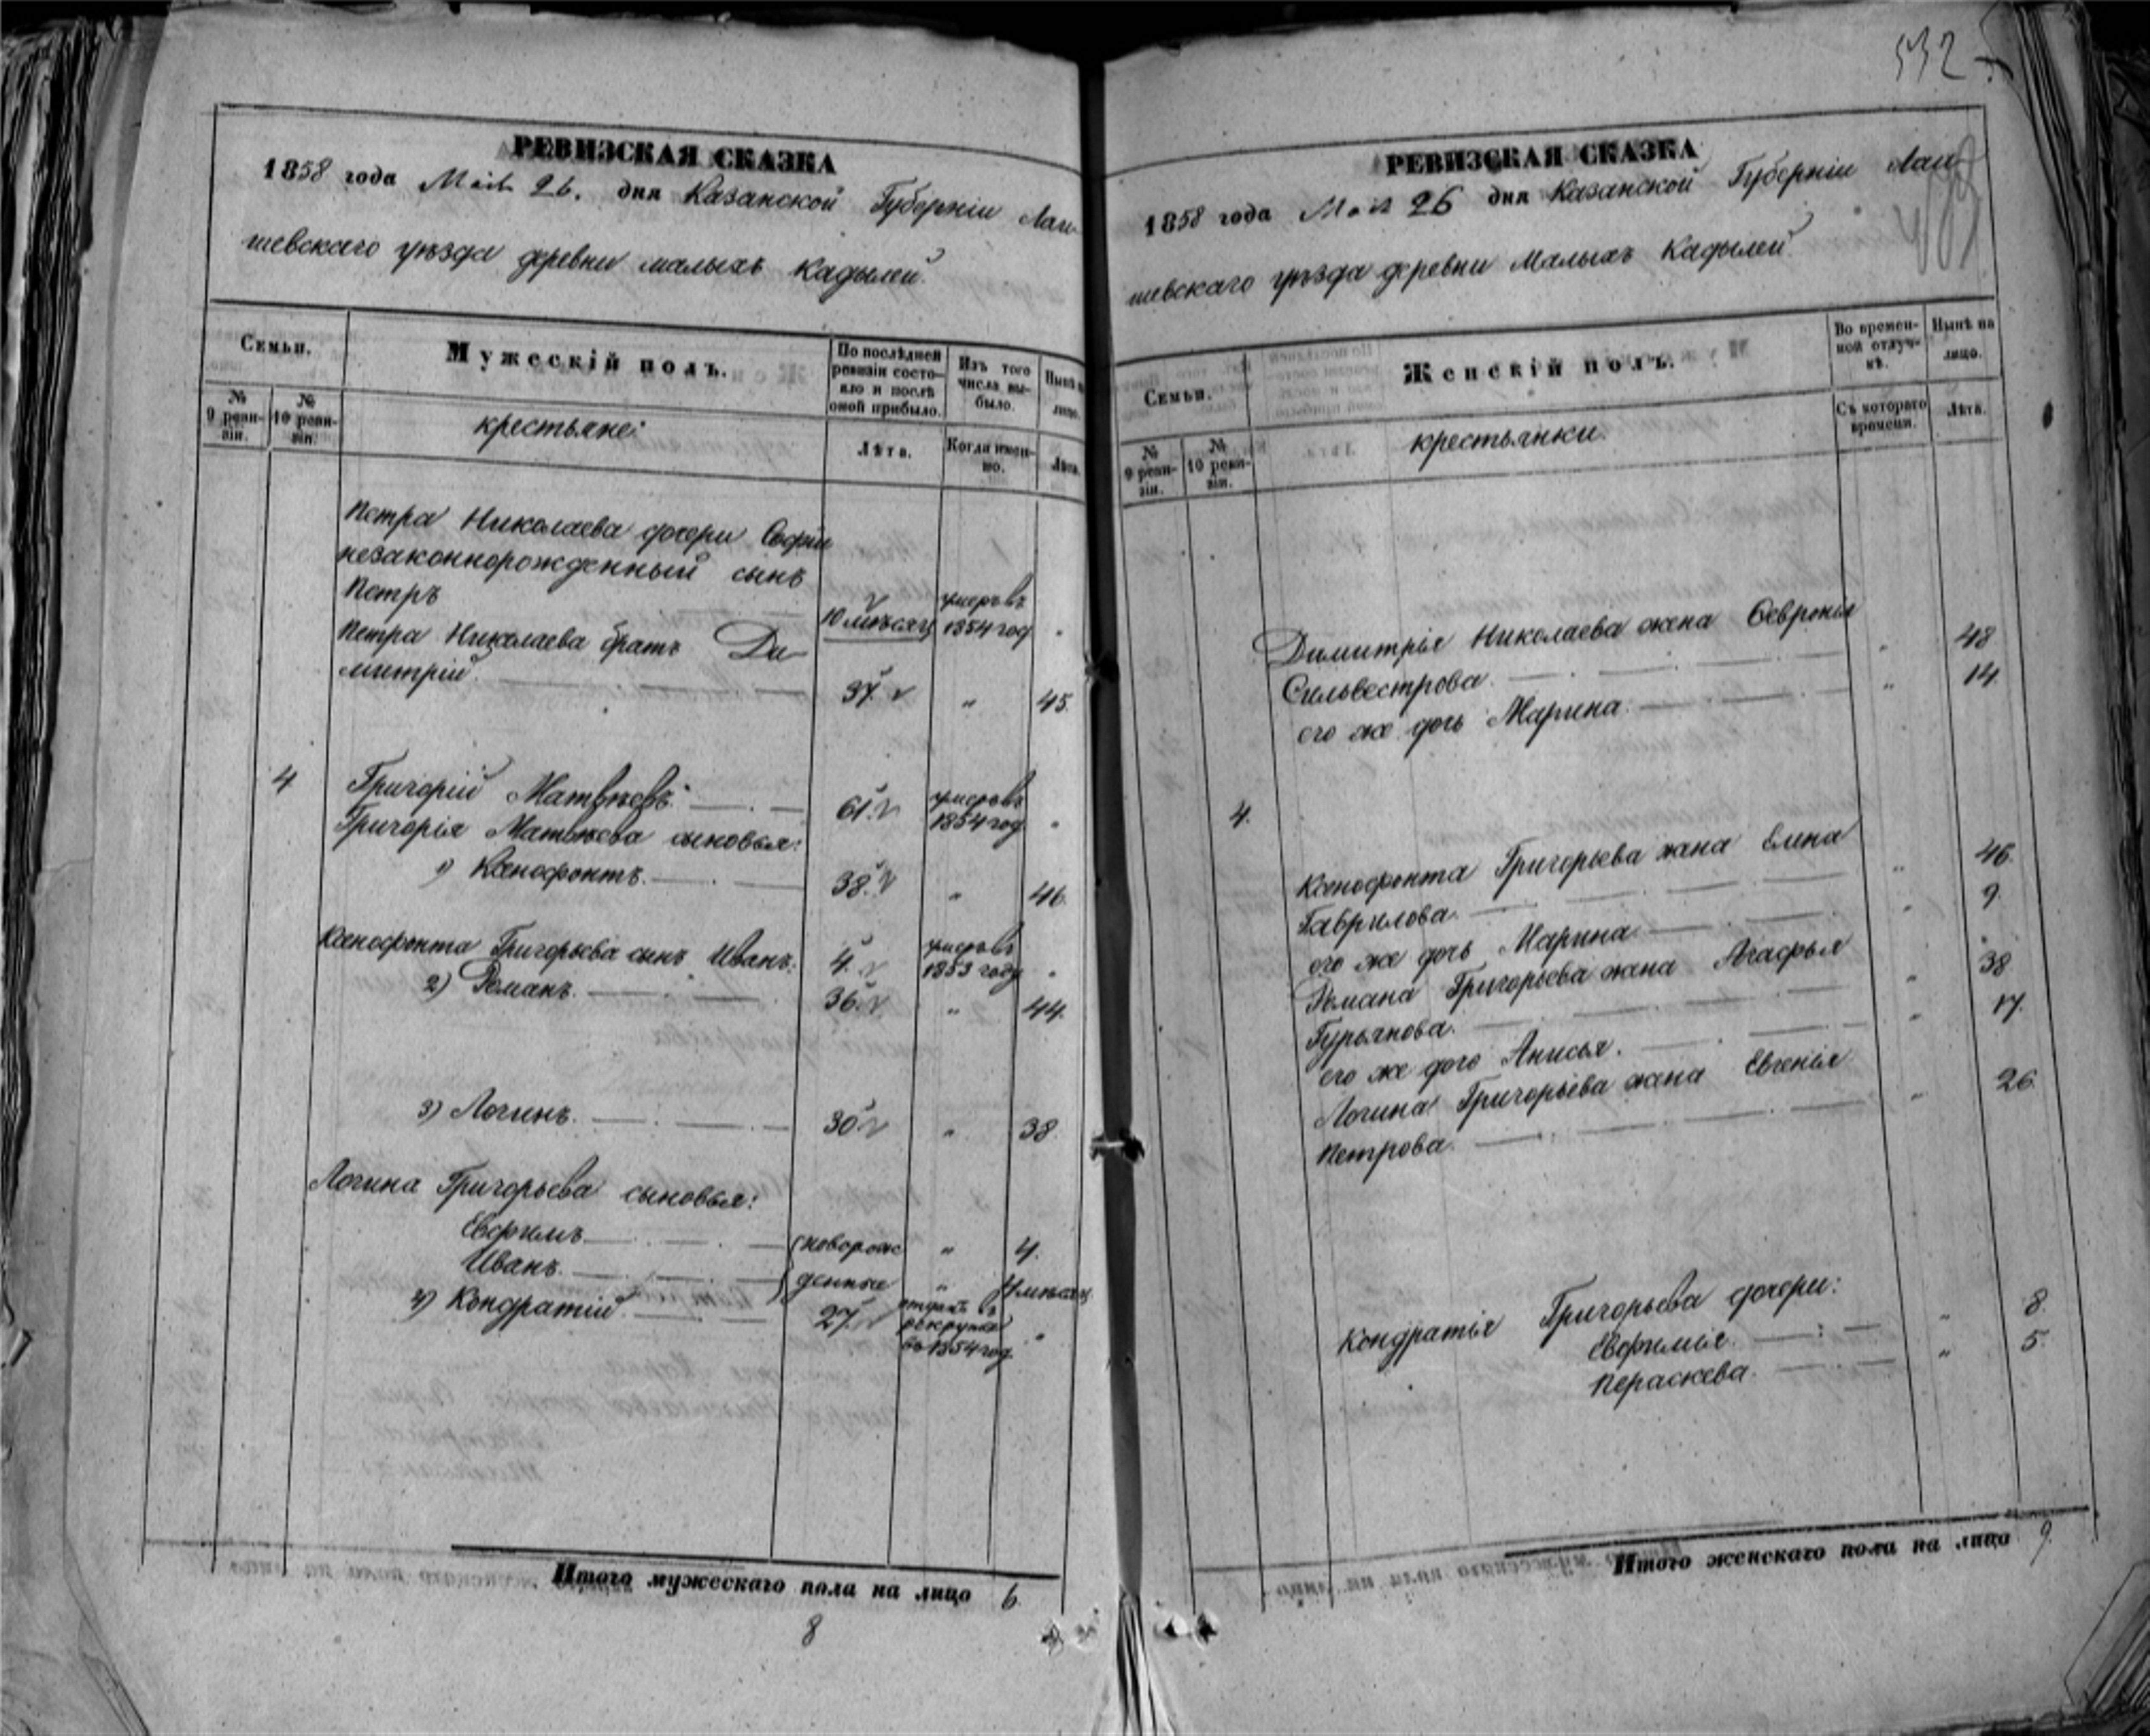 532
РЕВИЗСКАЯ СКАЗКА
1858 года Мая 26. дня Казанской Губернiи Лаи-
шевскаго уѣзда деревни малыхъ Кадылей.
Семьи.
Мужескiй полъ.
По послѣдней ревизiи состо-
яло и послѣ оной прибыло.
Изъ того числа вы-
было.
Нынѣ на лицо.
№ 9 реви-
зiи.
№ 10 реви-
зiи.
крестьяне:
Лѣта.
Когда имен-
но.
Лѣта.
Петра Николаева дочери Софьи
незаконнорожденный сынъ
Петръ 10 мѣсяц умеръ въ 1854 год „
Петра Николаева братъ Ди-
митрiй. 37. „ 45.
4 Григорiй Матвѣевъ. 61. умеръ въ 1854 год „
Григорiя Матвѣева сыновья:
1) Ксенофонтъ. 38. „ 46.
Ксенофонта Григорьева сынъ Иванъ. 4. умеръ въ 1853 году „
2) Романъ. 36. „ 44.
3) Логинъ. 30 „ 38.
Логина Григорьева сыновья:
Евфимъ (новорож „ 4.
Иванъ. денные „ мѣсяц
4) Кондратiй. 27. отданъ в рекруты въ 1854 год „
Итого мужескаго пола на лицо 6
8
РЕВИЗСКАЯ СКАЗКА
1858 года Мая 26 дня Казанской Губернiи Лаи-
шевскаго уѣзда деревни Малыхъ Кадылей
Семьи.
Женскiй полъ.
Во времен-
ной отлуч-
кѣ.
Нынѣ на лицо.
№ 9 реви-
зiи.
№ 10 реви-
зiи.
крестьянки.
Съ котораго времени.
Лѣта.
Димитрiя Николаева жена Февронья
Сильвестрова. „ 48
его же дочь Марина. „ 14
4.
Ксенофонта Григорьева жена Елена
Гаврилова. „ 46.
его же дочь Марина. „ 9.
Романа Григорьева жена Агафья
Гурьянова. „ 38
его же дочь Анисья. „ 17.
Логина Григорьева жена Евгенiя
Петрова. „ 26.
Кондратiя Григорьева дочери:
Евфимiя. „ 8.
Пераскева. „ 5.
Итого женскаго пола на лицо 9.